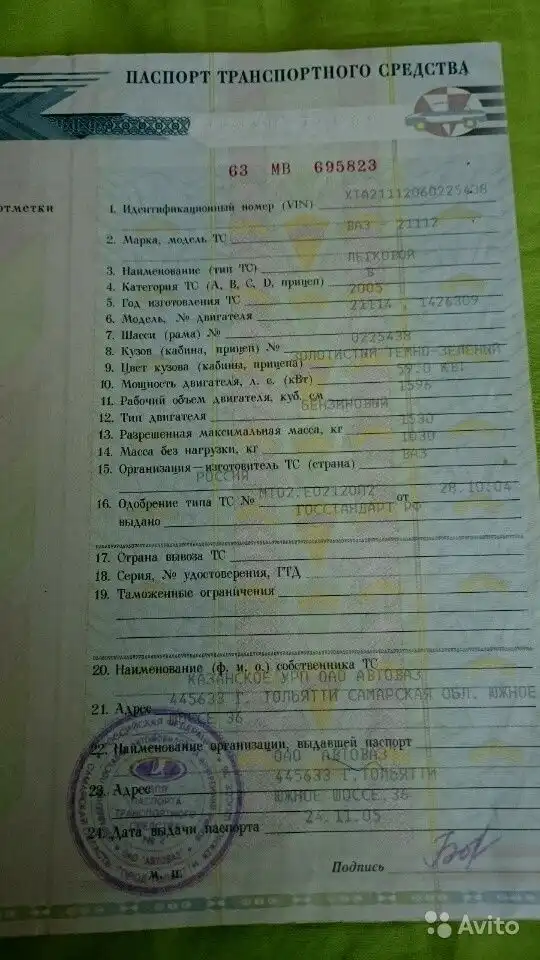 ПАСПОРТ ТРАНСПОРТНОГО СРЕДСТВА
63 МВ 695823
отметки
1. Идентификационный номер (VIN) XTA21112060225438
2. Марка, модель ТС ВАЗ - 21112
3. Наименование (тип ТС) ЛЕГКОВОЙ
4. Категория ТС (А, В, С, D, прицеп) В
5. Год изготовления ТС 2005
6. Модель, № двигателя 21114 , 1426309
7. Шасси (рама) №
8. Кузов (кабина, прицеп) № 0225438
9. Цвет кузова (кабины, прицепа) ЗОЛОТИСТЫЙ ТЕМНО-ЗЕЛЕНЫЙ
10. Мощность двигателя, л. с. (кВт) 59.0 КВТ
11. Рабочий объем двигателя, куб. см 1596
12. Тип двигателя БЕНЗИНОВЫЙ
13. Разрешенная максимальная масса, кг 1530
14. Масса без нагрузки, кг 1030
15. Организация—изготовитель ТС (страна) ВАЗ
РОССИЯ
16. Одобрение типа ТС № от 28.10.04
выдано ГОССТАНДАРТ РФ
17. Страна вывоза ТС
18. Серия, № удостоверения, ГТД
19. Таможенные ограничения
20. Наименование (ф. и. о.) собственника ТС
КАЗАНСКОЕ УРП ОАО АВТОВАЗ
21. Адрес 445633 Г. ТОЛЬЯТТИ САМАРСКАЯ ОБЛ. ЮЖНОЕ
ШОССЕ 36
22. Наименование организации, выдавшей паспорт
ОАО АВТОВАЗ
23. Адрес 445633 Г.ТОЛЬЯТТИ
ЮЖНОЕ ШОССЕ,36
24. Дата выдачи паспорта 24.11.05
ДЛЯ
ПАСПОРТА
ТРАНСПОРТНОГО
СРЕДСТВА
М. П.
Подпись
Avito